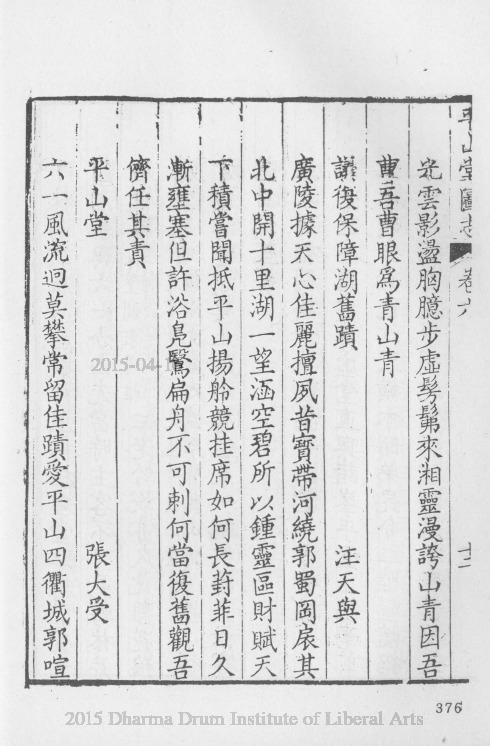 平山堂圖志 卷六 十二
光雲影盪胸臆步虛髣髴來湘靈漫誇山青因吾
曹吾曹眼爲青山青
議復保障湖舊蹟 汪天與
廣陵據天心佳麗擅夙昔寶帶河繞郭蜀岡扆其
北中開十里湖一望涵空碧所以鍾靈區財賦天
下積嘗聞抵平山揚舲競挂席如何長葑菲日久
漸壅塞但許浴鳧鷖扁舟不可刺何當復舊觀吾
儕任其責
平山堂 張大受
六一風流迥莫攀常留佳蹟愛平山四衢城郭喧
376
2015-04-1
2015 Dharma Drum Institute of Liberal Arts